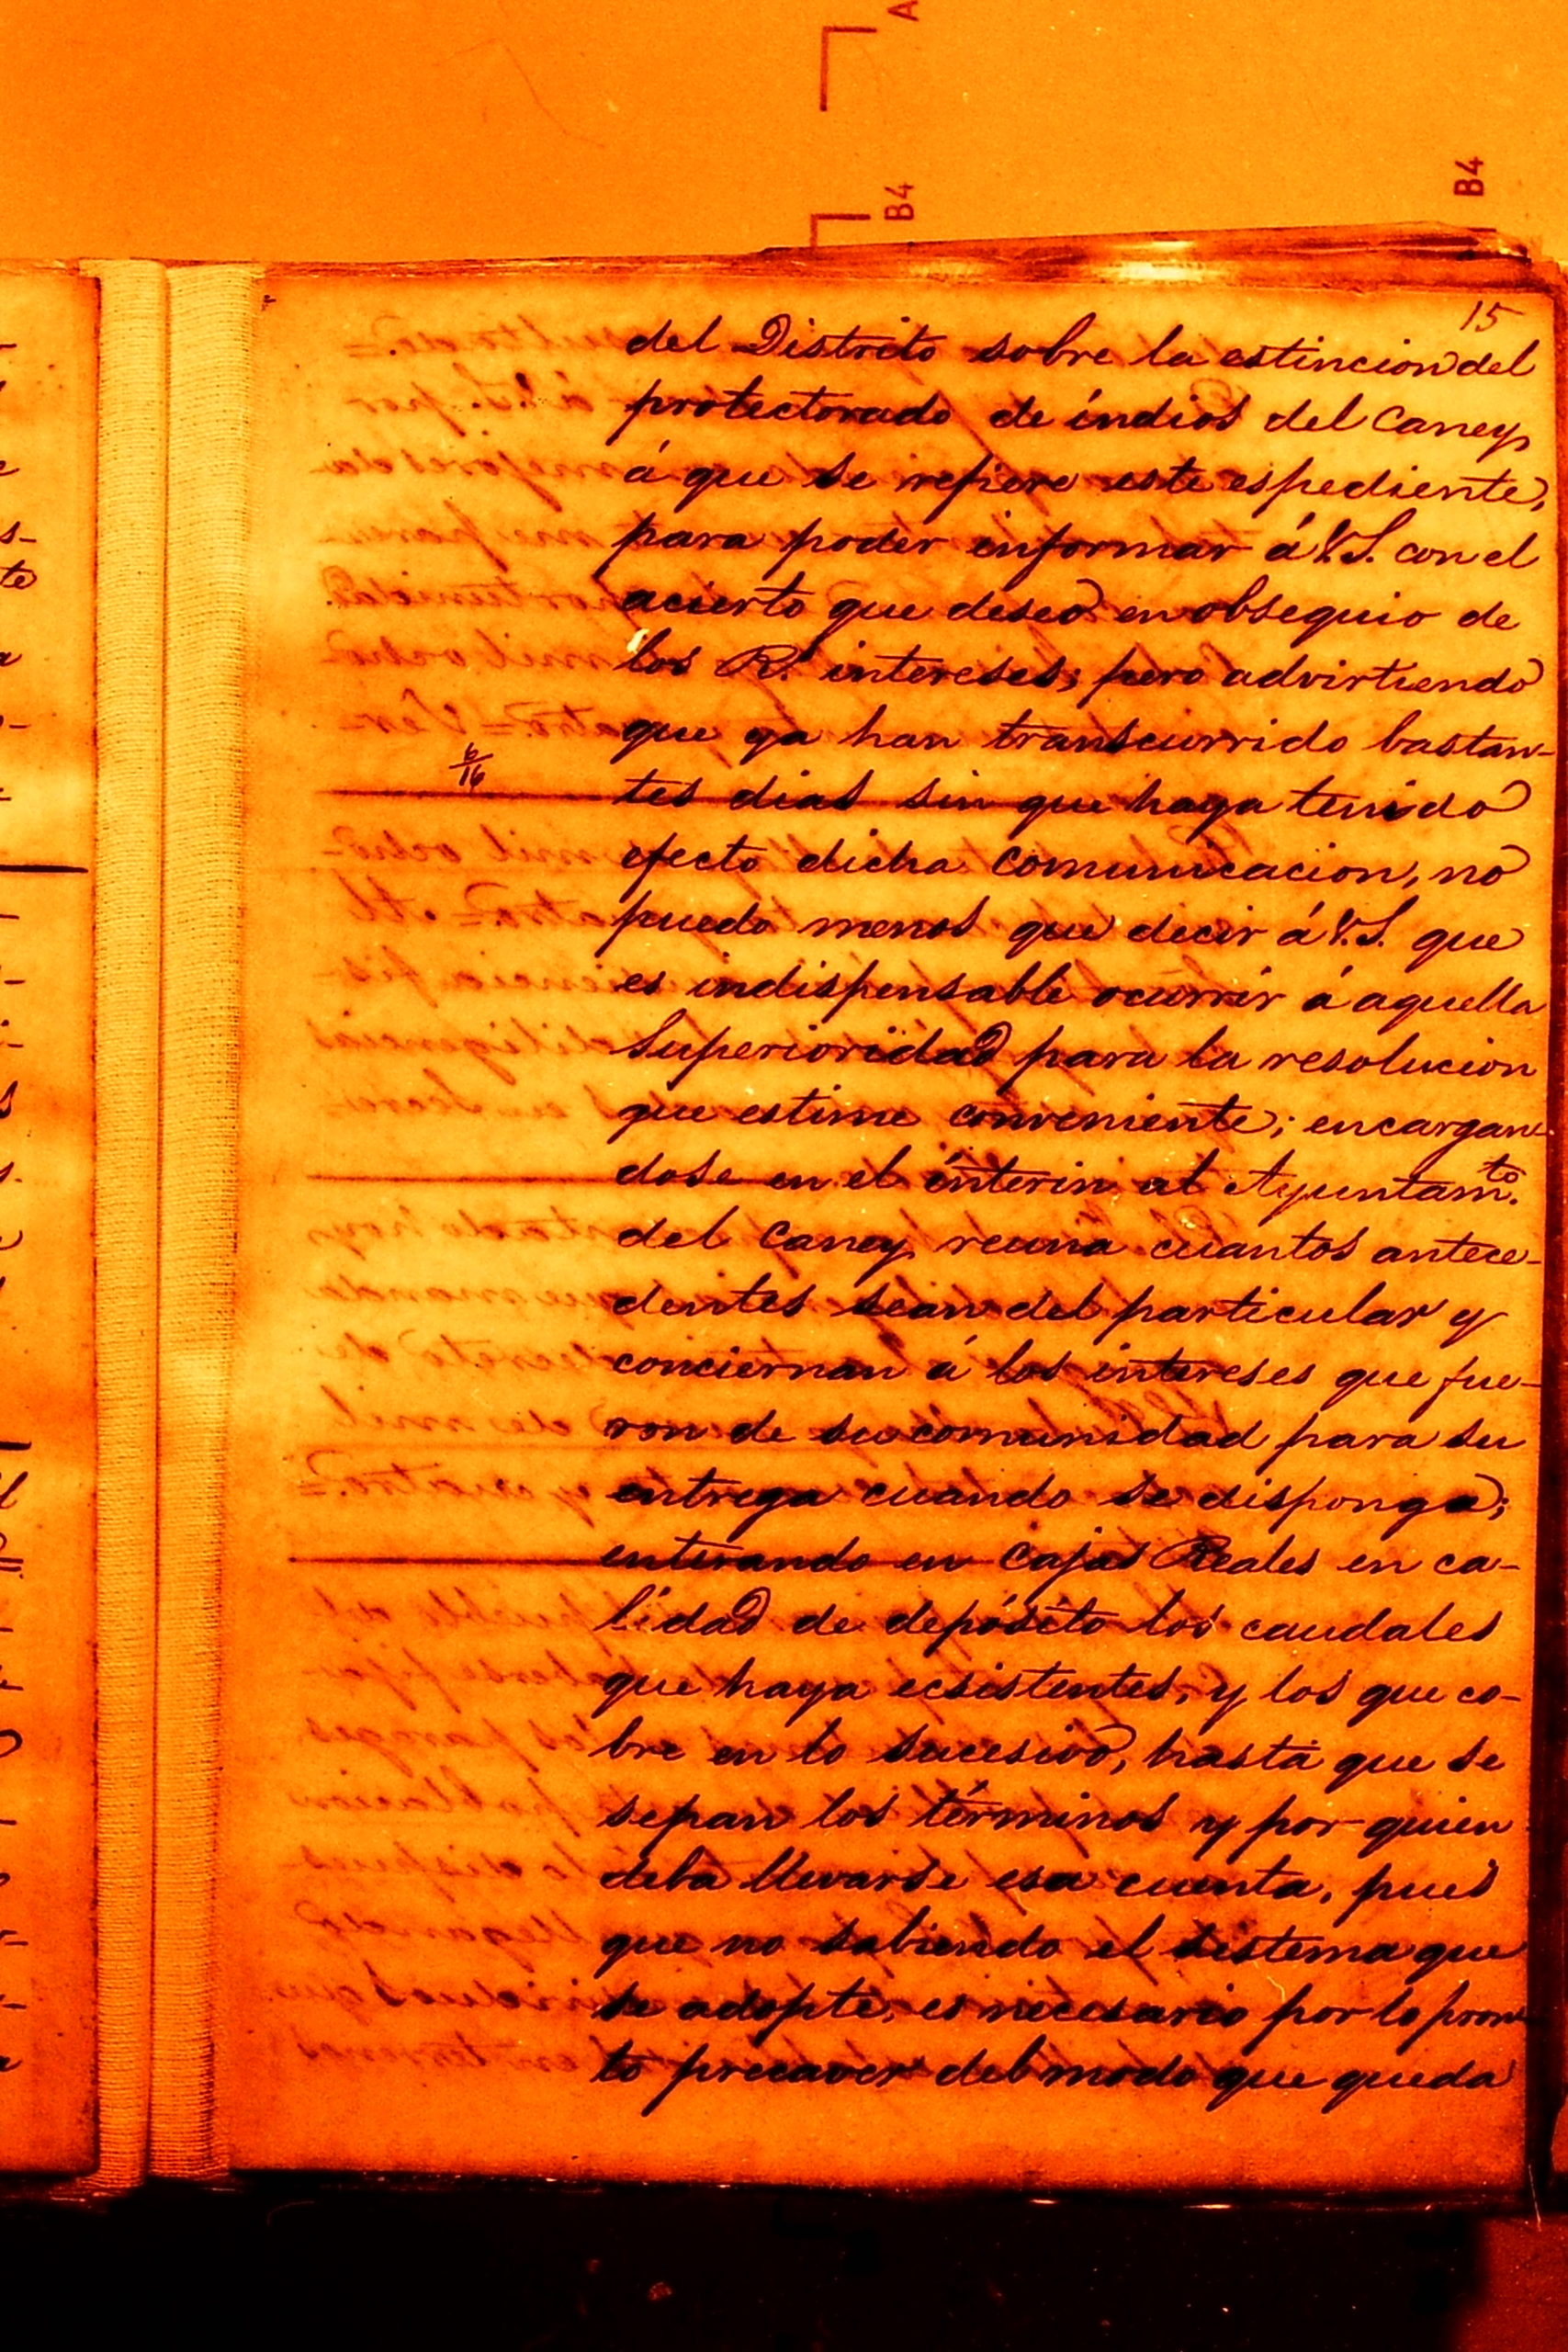 A
B4
B4
15
del Distrito sobre la estincion del
protectorado de indios del Caney,
á que se refiere este espediente,
para poder informar á V.S. con el
acierto que deseo en obsequio de
los R.s intereses; pero advirtiendo
que ya han transcurrido bastan-
6/16
tes dias sin que haya tenido
efecto dicha comunicacion, no
puedo menos que decir á V.S. que
es indispensable ocurrir á aquella
Superioridad para la resolucion
que estime conveniente; encargan-
dose en el ínterin al Ayuntam.to
del Caney reuna cuantos antece-
dentes sean del particular y
conciernan á los intereses que fue-
ron de su comunidad para su
entrega cuando se disponga;
enterando en Cajas Reales en ca-
lidad de depósito los caudales
que haya ecsistentes, y los que co-
bre en lo sucesivo, hasta que se
sepan los términos y por quien
deba llevarse esa cuenta, pues
que no sabiendo el sistema que
se adopte, es necesario por lo pron-
to precaver del modo que queda